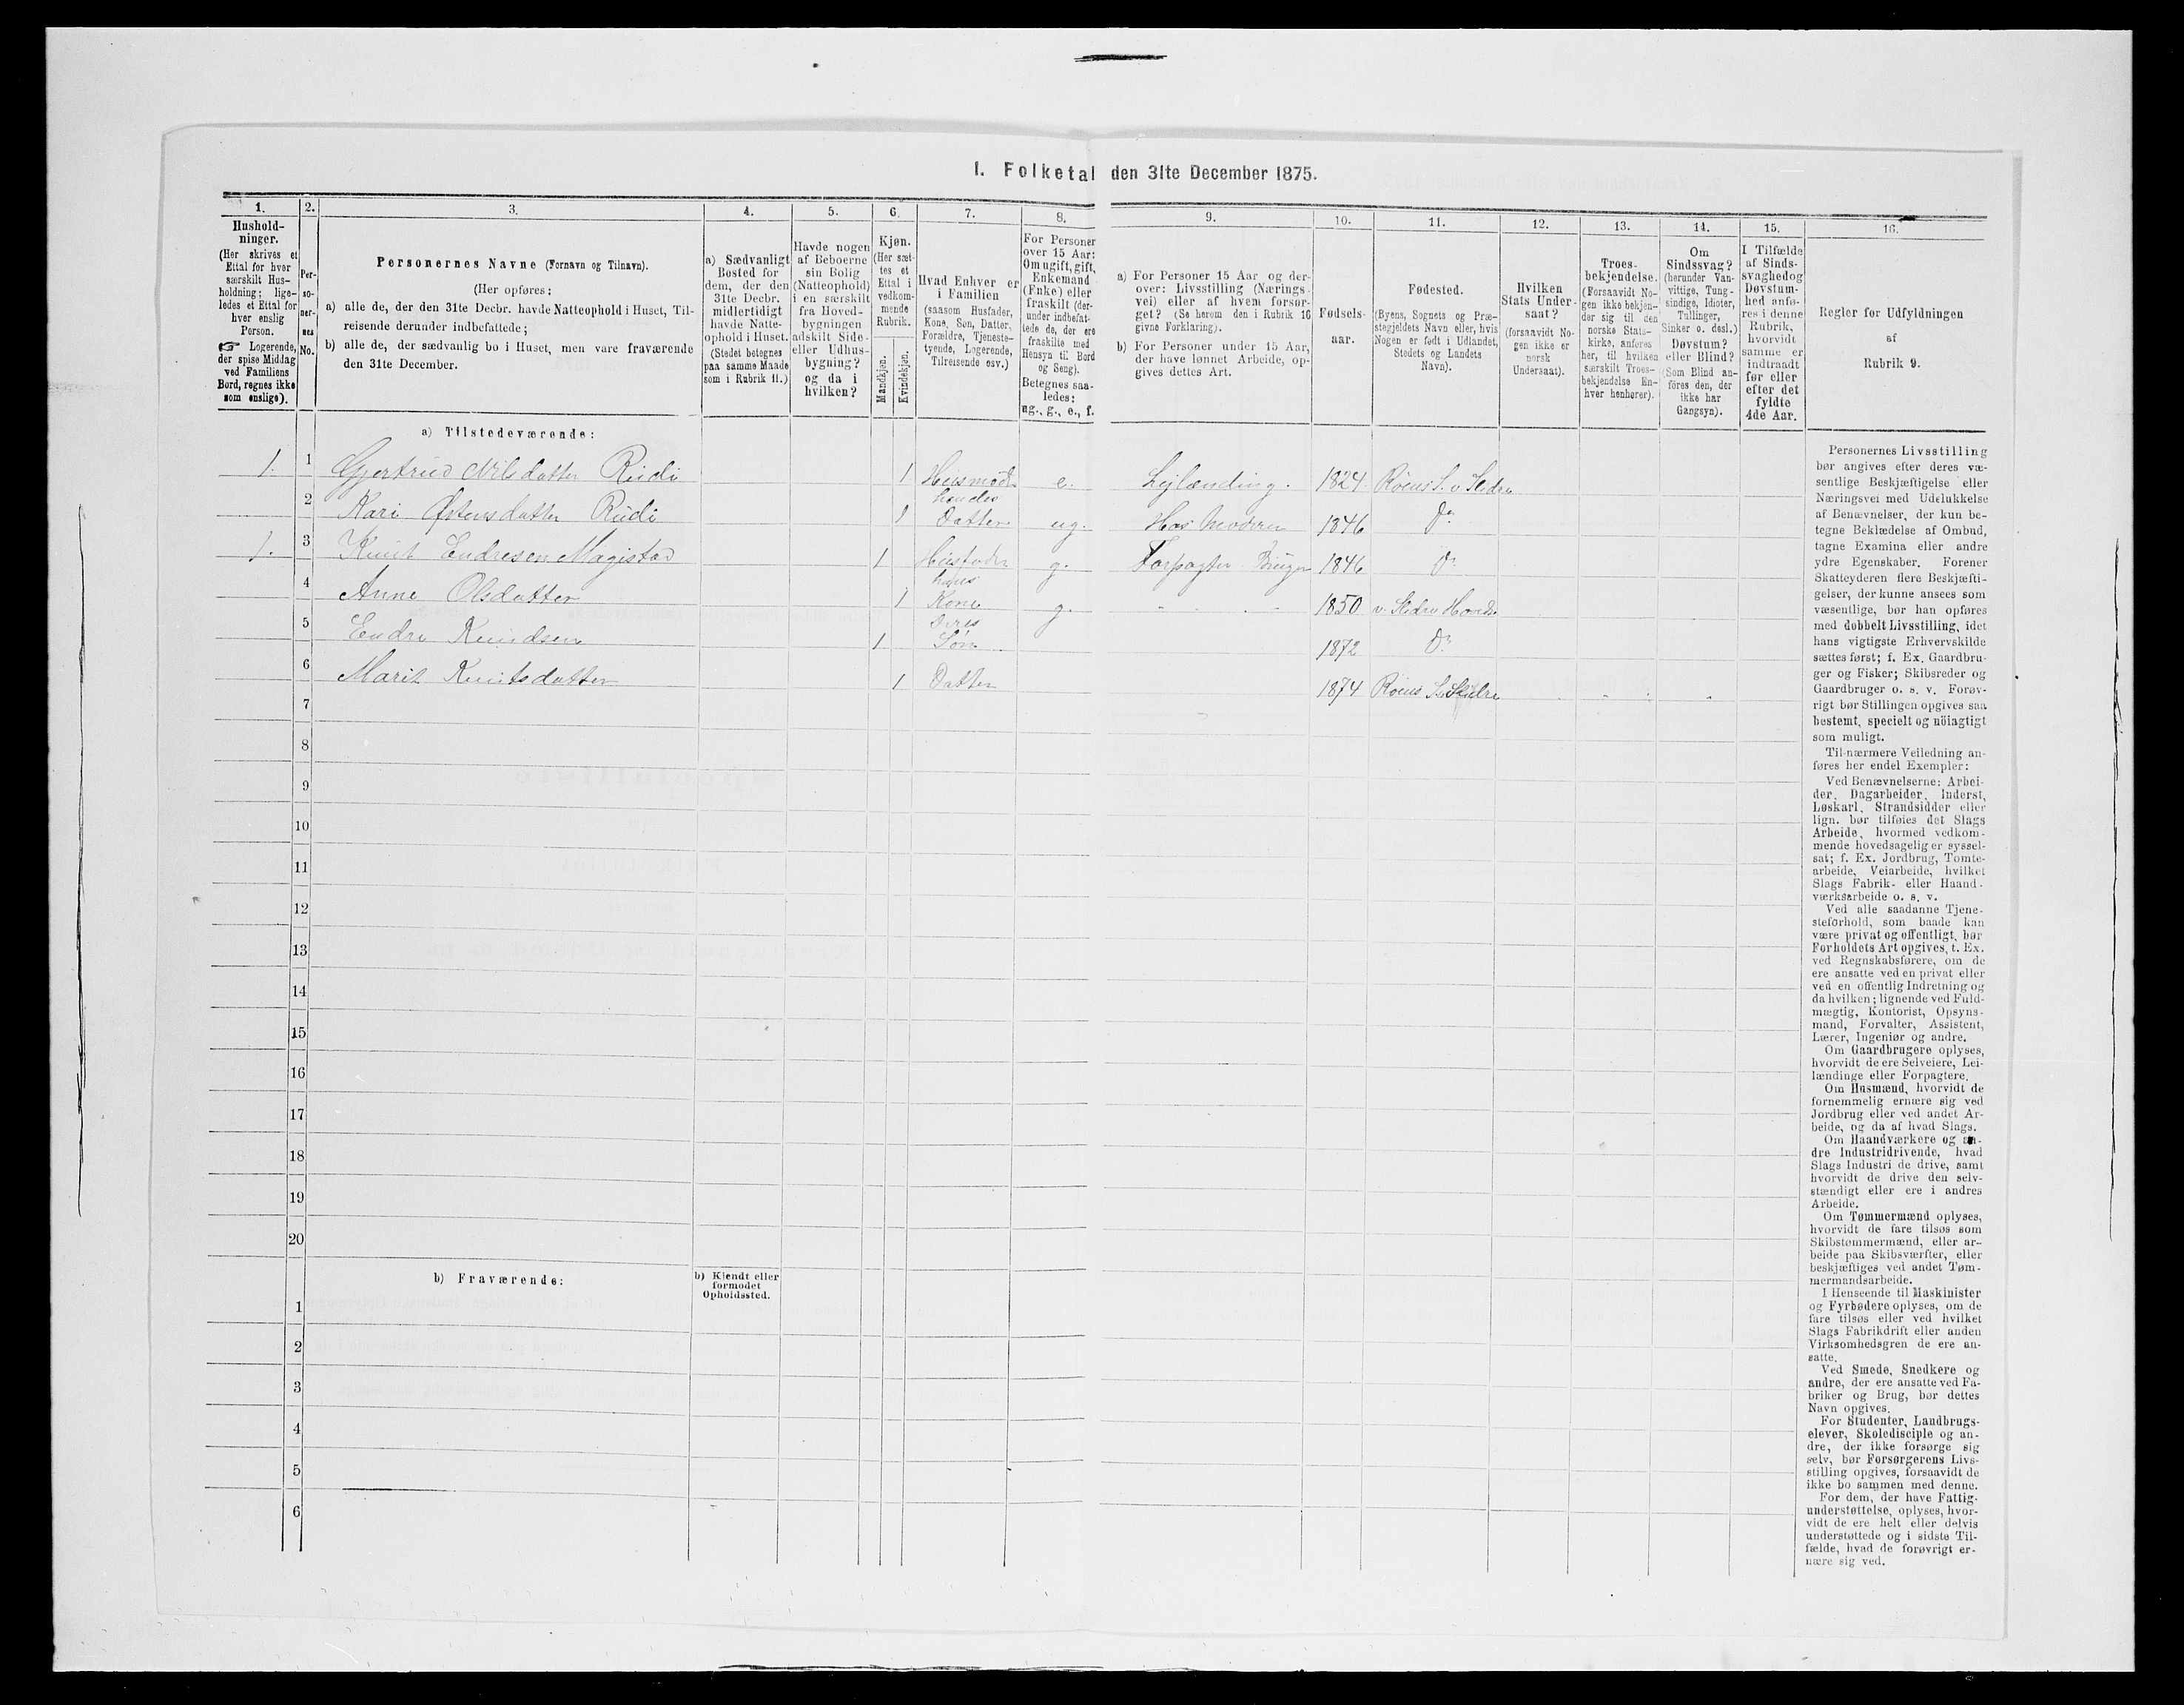 I. Folketal den 31te December 1875.
1. 2. 3. 4. 5. 6. 7. 8. 9. 10. 11. 12. 13. 14. 15. 16.
Hushold-
ninger.
(Her skrives et
Ettal for hver
særskilt Hus-
holdning; lige-
ledes et Ettal for
hver enslig
Person.
☞ Logerende,
der spise Middag
ved Familiens
Bord, regnes ikke
som enslige).
Per-
so-
ner-
nes
No.
Personernes Navne (Fornavn og Tilnavn).
(Her opføres:
a) alle de, der den 31te Decbr. havde Natteophold i Huset, Til-
reisende derunder indbefattede;
b) alle de, der sædvanlig bo i Huset, men vare fraværende
den 31te December.
a) Sædvanligt
Bosted for
dem, der den
31te Decbr.
midlertidigt
havde Natte-
ophold i Huset.
(Stedet betegnes
paa samme Maade
som i Rubrik 11.)
Havde nogen
af Beboerne
sin Bolig
(Natteophold)
i en særskilt
fra Hoved-
bygningen
adskilt Side-
eller Udhus-
bygning?
og da i
hvilken?
Kjøn.
(Her sæt-
tes et
Ettal i
vedkom-
mende
Rubrik.
Mandkjøn.
Kvindekjøn.
Hvad Enhver er
i Familien
(saasom Husfader,
Kone, Søn, Datter,
Forældre, Tjeneste-
tyende, Logerende,
Tilreisende osv.)
For Personer
over 15 Aar:
Om ugift, gift,
Enkemand
(Enke) eller
fraskilt (der-
under indbefat-
tede de, der ere
fraskilte med
Hensyn til Bord
og Seng).
Betegnes saa-
ledes:
ug., g., e., f.
a) For Personer 15 Aar og der-
over: Livsstilling (Nærings-
vei) eller af hvem forsør-
get? (Se herom den i Rubrik 16
givne Forklaring).
b) For Personer under 15 Aar,
der have lønnet Arbeide, op-
gives dettes Art.
Fødsels-
aar.
Fødested.
(Byens, Sognets og Præ-
stegjeldets Navn eller, hvis
Nogen er født i Udlandet,
Stedets og Landets
Navn).
Hvilken
Stats Under-
saat?
(forsaavidt No-
gen ikke er
norsk
Undersaat).
Troes-
bekjendelse.
(Forsaavidt No-
gen ikke bekjen-
der sig til den
norske Stats-
kirke, anføres
her, til hvilken
særskilt Troes-
bekjendelse En-
hver henhører).
Om
Sindssvag?
(herunder Van-
vittige, Tung-
sindige, Idioter,
Tullinger,
Sinker o. desl.)
Døvstum?
eller Blind?
(Som Blind an-
føres den, der
ikke har
Gangsyn).
I Tilfælde
af Sinds-
svaghed og
Døvstum-
hed anfø-
res i denne
Rubrik,
hvorvidt
samme er
indtraadt
før eller
efter det
fyldte
4de Aar.
Regler for Udfyldningen
af
Rubrik 9.
a) Tilstedeværende:
1. 1 Gjertrud Nilsdatter Rudi 1 Husmoder e. Lejlænding. 1824 Røens S. v Slidre
2 Kari Østensdatter Rudi 1 hendes Datter ug. Hos Moderen 1846 Do
1. 3 Knut Endresen Magistad 1 Husfader g. Forpagter Bruger 1846 Do
4 Anne Olsdatter 1 hans Kone g. 1850 v. Slidre Hoveds
5 Endre Knudsen 1 Deres Søn 1872 Do
6 Marit Knutsdatter 1 Datter 1874 Røens S. Slidre
7
8
9
10
11
12
13
14
15
16
17
18
19
20
b) Fraværende:
b) Kjendt eller
formodet
Opholdssted.
1
2
3
4
5
6
Personernes Livsstilling
bør angives efter deres væ-
sentlige Beskjæftigelse eller
Næringsvei med Udelukkelse
af Benævnelser, der kun be-
tegne Beklædelse af Ombud,
tagne Examina eller andre
ydre Egenskaber. Forener
Skatteyderen flere Beskjæfti-
gelser, der kunne ansees som
væsentlige, bør han opføres
med dobbelt Livsstilling, idet
hans vigtigste Erhvervskilde
sættes først; f. Ex. Gaardbru-
ger og Fisker; Skibsreder og
Gaardbruger o. s. v. Forøv-
rigt bør Stillingen opgives saa
bestemt, specielt og nöiagtigt
som muligt.
Til nærmere Veiledning an-
føres her endel Exempler:
Ved Benævnelserne: Arbei-
der, Dagarbeider, Inderst,
Løskarl, Strandsidder eller
lign. bør tilføies det Slags
Arbeide, hvormed vedkom-
mende hovedsagelig er syssel-
sat; f. Ex. Jordbrug, Tomte-
arbeide, Veiarbeide, hvilket
Slags Fabrik- eller Haand-
værksarbeide o. s. v.
Ved alle saadanne Tjene-
steforhold, som baade kan
være privat og offentligt, bør
Forholdets Art opgives, t. Ex.
ved Regnskabsførere, om de
ere ansatte ved en privat eller
ved en offentlig Indretning og
da hvilken; lignende ved Fuld-
mægtig, Kontorist, Opsyns-
mand, Forvalter, Assistent,
Lærer, Ingeniør og andre.
Om Gaardbrugere oplyses,
hvorvidt de ere Selveiere, Lei-
lændinge eller Forpagtere.
Om Husmænd, hvorvidt de
fornemmelig ernære sig ved
Jordbrug eller ved andet Ar-
beide, og da af hvad Slags.
Om Haandværkere og an-
dre Industridrivende, hvad
Slags Industri de drive, samt
hvorvidt de drive den selv-
stændigt eller ere i andres
Arbeide.
Om Tømmermænd oplyses,
hvorvidt de fare tilsøs som
Skibstømmermænd, eller ar-
beide paa Skibsværfter, eller
beskjæftiges ved andet Tøm-
mermandsarbeide.
I Henseende til Maskinister
og Fyrbødere oplyses, om de
fare tilsøs eller ved hvilket
Slags Fabrikdrift eller anden
Virksomhedsgren de ere an-
satte.
Ved Smede, Snedkere og
andre, der ere ansatte ved Fa-
briker og Brug, bør dettes
Navn opgives.
For Studenter, Landbrugs-
elever, Skoledisciple og an-
dre, der ikke forsørge sig
selv, bør Forsørgerens Livs-
stilling opgives, forsaavidt de
ikke bo sammen med denne.
For dem, der have Fattig-
understøttelse, oplyses, hvor-
vidt de ere helt eller delvis
understøttede og i sidste Til-
fælde, hvad de forøvrigt er-
nære sig ved.